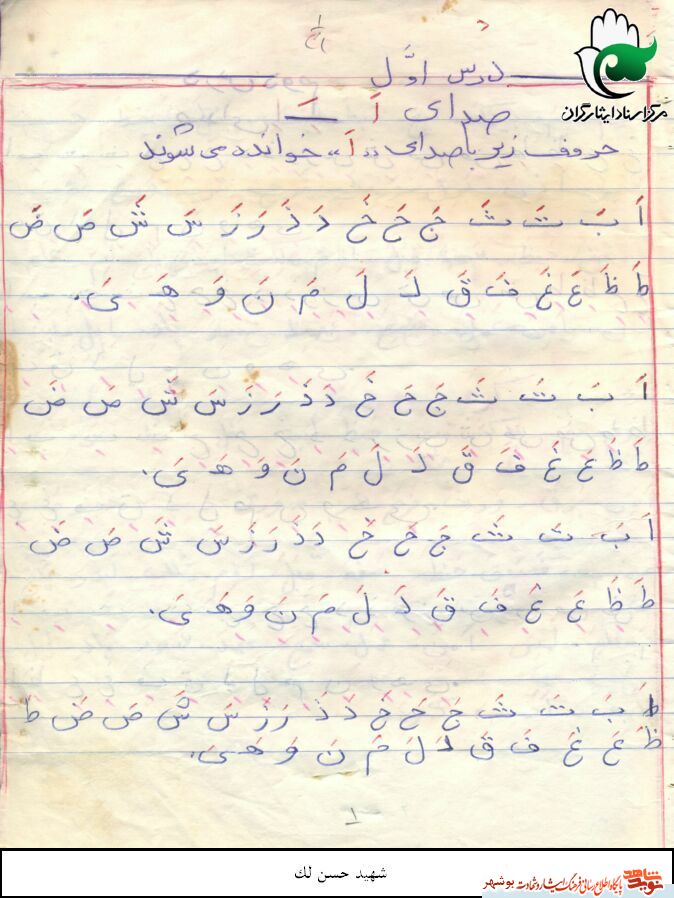 ۱
درس اوَّل
مرکز اسناد ایثارگران
صدای اَ ــَـ
حروف زیر با صدای «اَ» خوانده می شوند
اَ بَ تَ ثَ جَ حَ خَ دَ ذَ رَ زَ سَ شَ صَ ضَ
طَ ظَ عَ غَ فَ قَ كَ لَ مَ نَ وَ هَ یَ.
اَ بَ تَ ثَ جَ حَ خَ دَ ذَ رَ زَ سَ شَ صَ ضَ
طَ ظَ عَ غَ فَ قَ كَ لَ مَ نَ وَ هَ یَ.
اَ بَ تَ ثَ جَ حَ خَ دَ ذَ رَ زَ سَ شَ صَ ضَ
طَ ظَ عَ غَ فَ قَ كَ لَ مَ نَ وَ هَ یَ.
اَ بَ تَ ثَ جَ حَ خَ دَ ذَ رَ زَ سَ شَ صَ ضَ طَ
ظَ عَ غَ فَ قَ كَ لَ مَ نَ وَ هَ یَ.
۱
شهید حسن لك
نوید شاهد پایگاه اطلاع رسانی فرهنگ ایثار و شهادت بوشهر